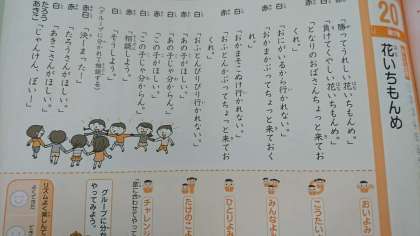 20
花いちもんめ
赤「勝ってうれしい花いちもんめ。」
白「負けてくやしい花いちもんめ。」
赤「となりのおばさんちょっと来てお
くれ。」
白「おにが いるから行かれない。」
赤「おかまかぶってちょっと来ておく
れ。」
白「おかまそこぬけ行かれない。」
赤「おふとんかぶってちょっと来てお
くれ。」
白「おふとんびりびり行かれない。」
赤「あの子がほしい。」
白「あの子じゃ分からん。」
赤「この子がほしい。」
白「この子じゃ分からん。」
赤「相談しよう。」
白「そうしよう。」
(グループに分かれて相談する)
赤「決ーまった!」
白「たろうさんがほしい。」
赤「あきこさんがほしい。」
たろう
あきこ
「じゃんけん、ぽい!」
おいよみ
こうたい
みんなよ
ひとりよみ
たけのこよ
チャレンジ
グループに分か
やってみよう。
リズムよく楽しんで